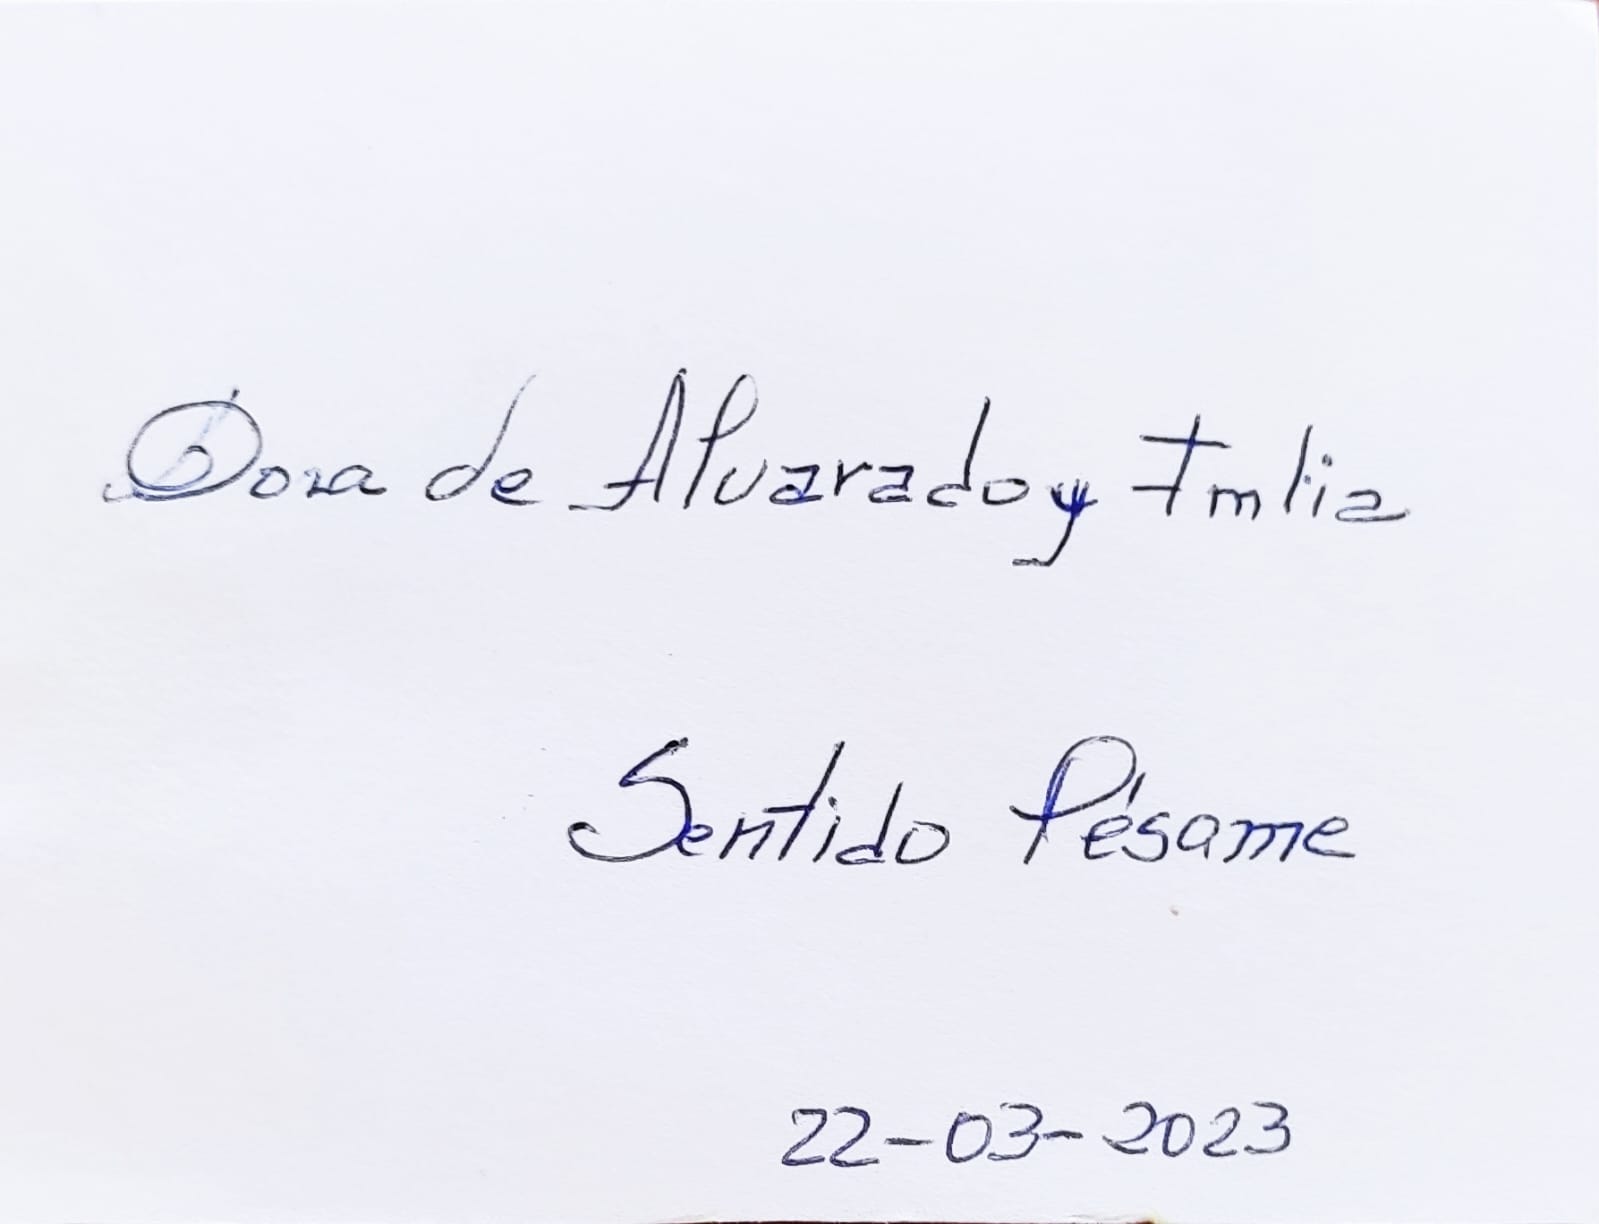 Dora de Alvarado y Fmlia
Sentido Pésame
22-03-2023